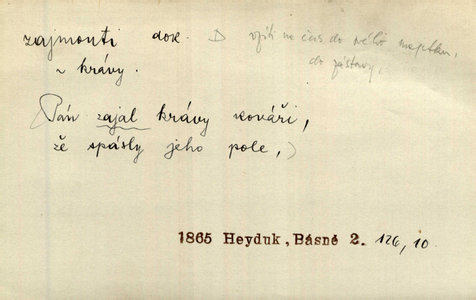 zajmouti dok. D vzíti na čas do svého majetku,
do zástavy,
~ krávy.
(Pán zajal krávy kováři,
že spásly jeho pole,)
1865 Heyduk, Básně 2. 126, 10.